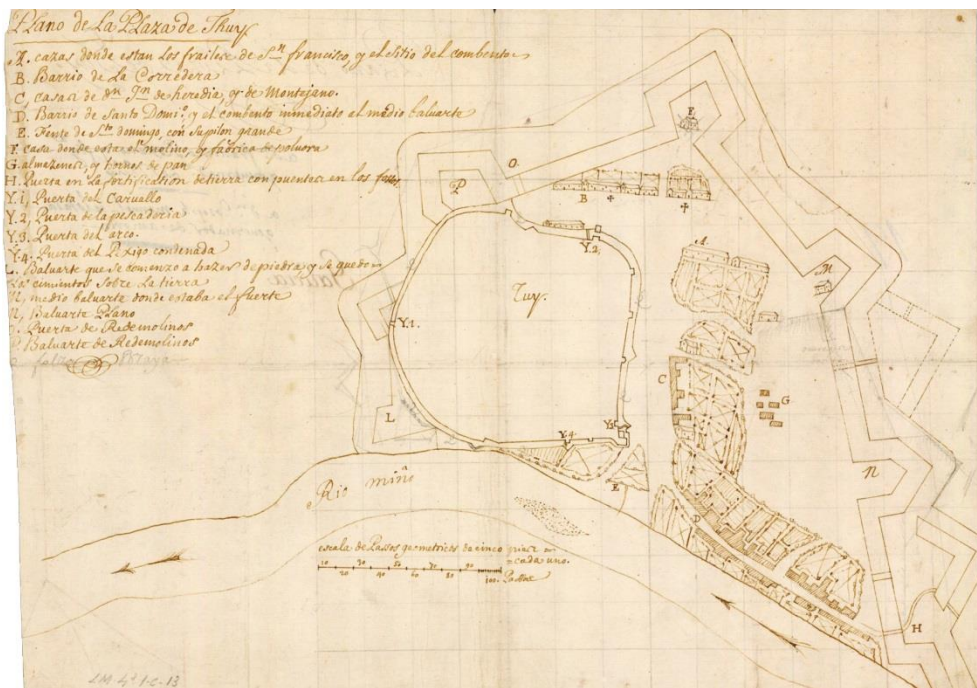 Plano de La Plaza de Thuy
A. cazas donde estan los frailes de Sn francisco, y el sitio del combento
B. Barrio de La Corredera
C, casas de dn Jn de heredia, y de Montejano.
D. Barrio de Santo Domio, y el combento inmediato al medio baluarte
E. Fente de Sto domingo, con su pilon grande
F. casa donde esta el molino, y fabrica de polvora
G. almazenes, y hornos de pan
H. Puerta en La fortification de tierra con puentes en los fosos
Y.1, Puerta del Carvallo
Y.2, Puerta de la pescaderia
Y.3. Puerta del arco.
Y.4. Puerta del Pexigo condenada
L. Baluarte que se comenzo a hazer de piedra, y se quedo
los cimientos sobre La tierra
M, medio baluarte donde estaba el fuerte
N, Baluarte Plano
O. Puerta de Redemolinos
P. Baluarte de Redemolinos
F.
O.
P
B
Y.2.
A.
M
Tuy.
Y.1.
C
G
L
Y.4.
Y.3
E
N
Rio miño
D
escala de Passos geometricos de cinco
cada uno.
10 20 30 40 50 60 70 80 90 100. Passos
H
LM-4ª-1-C-13